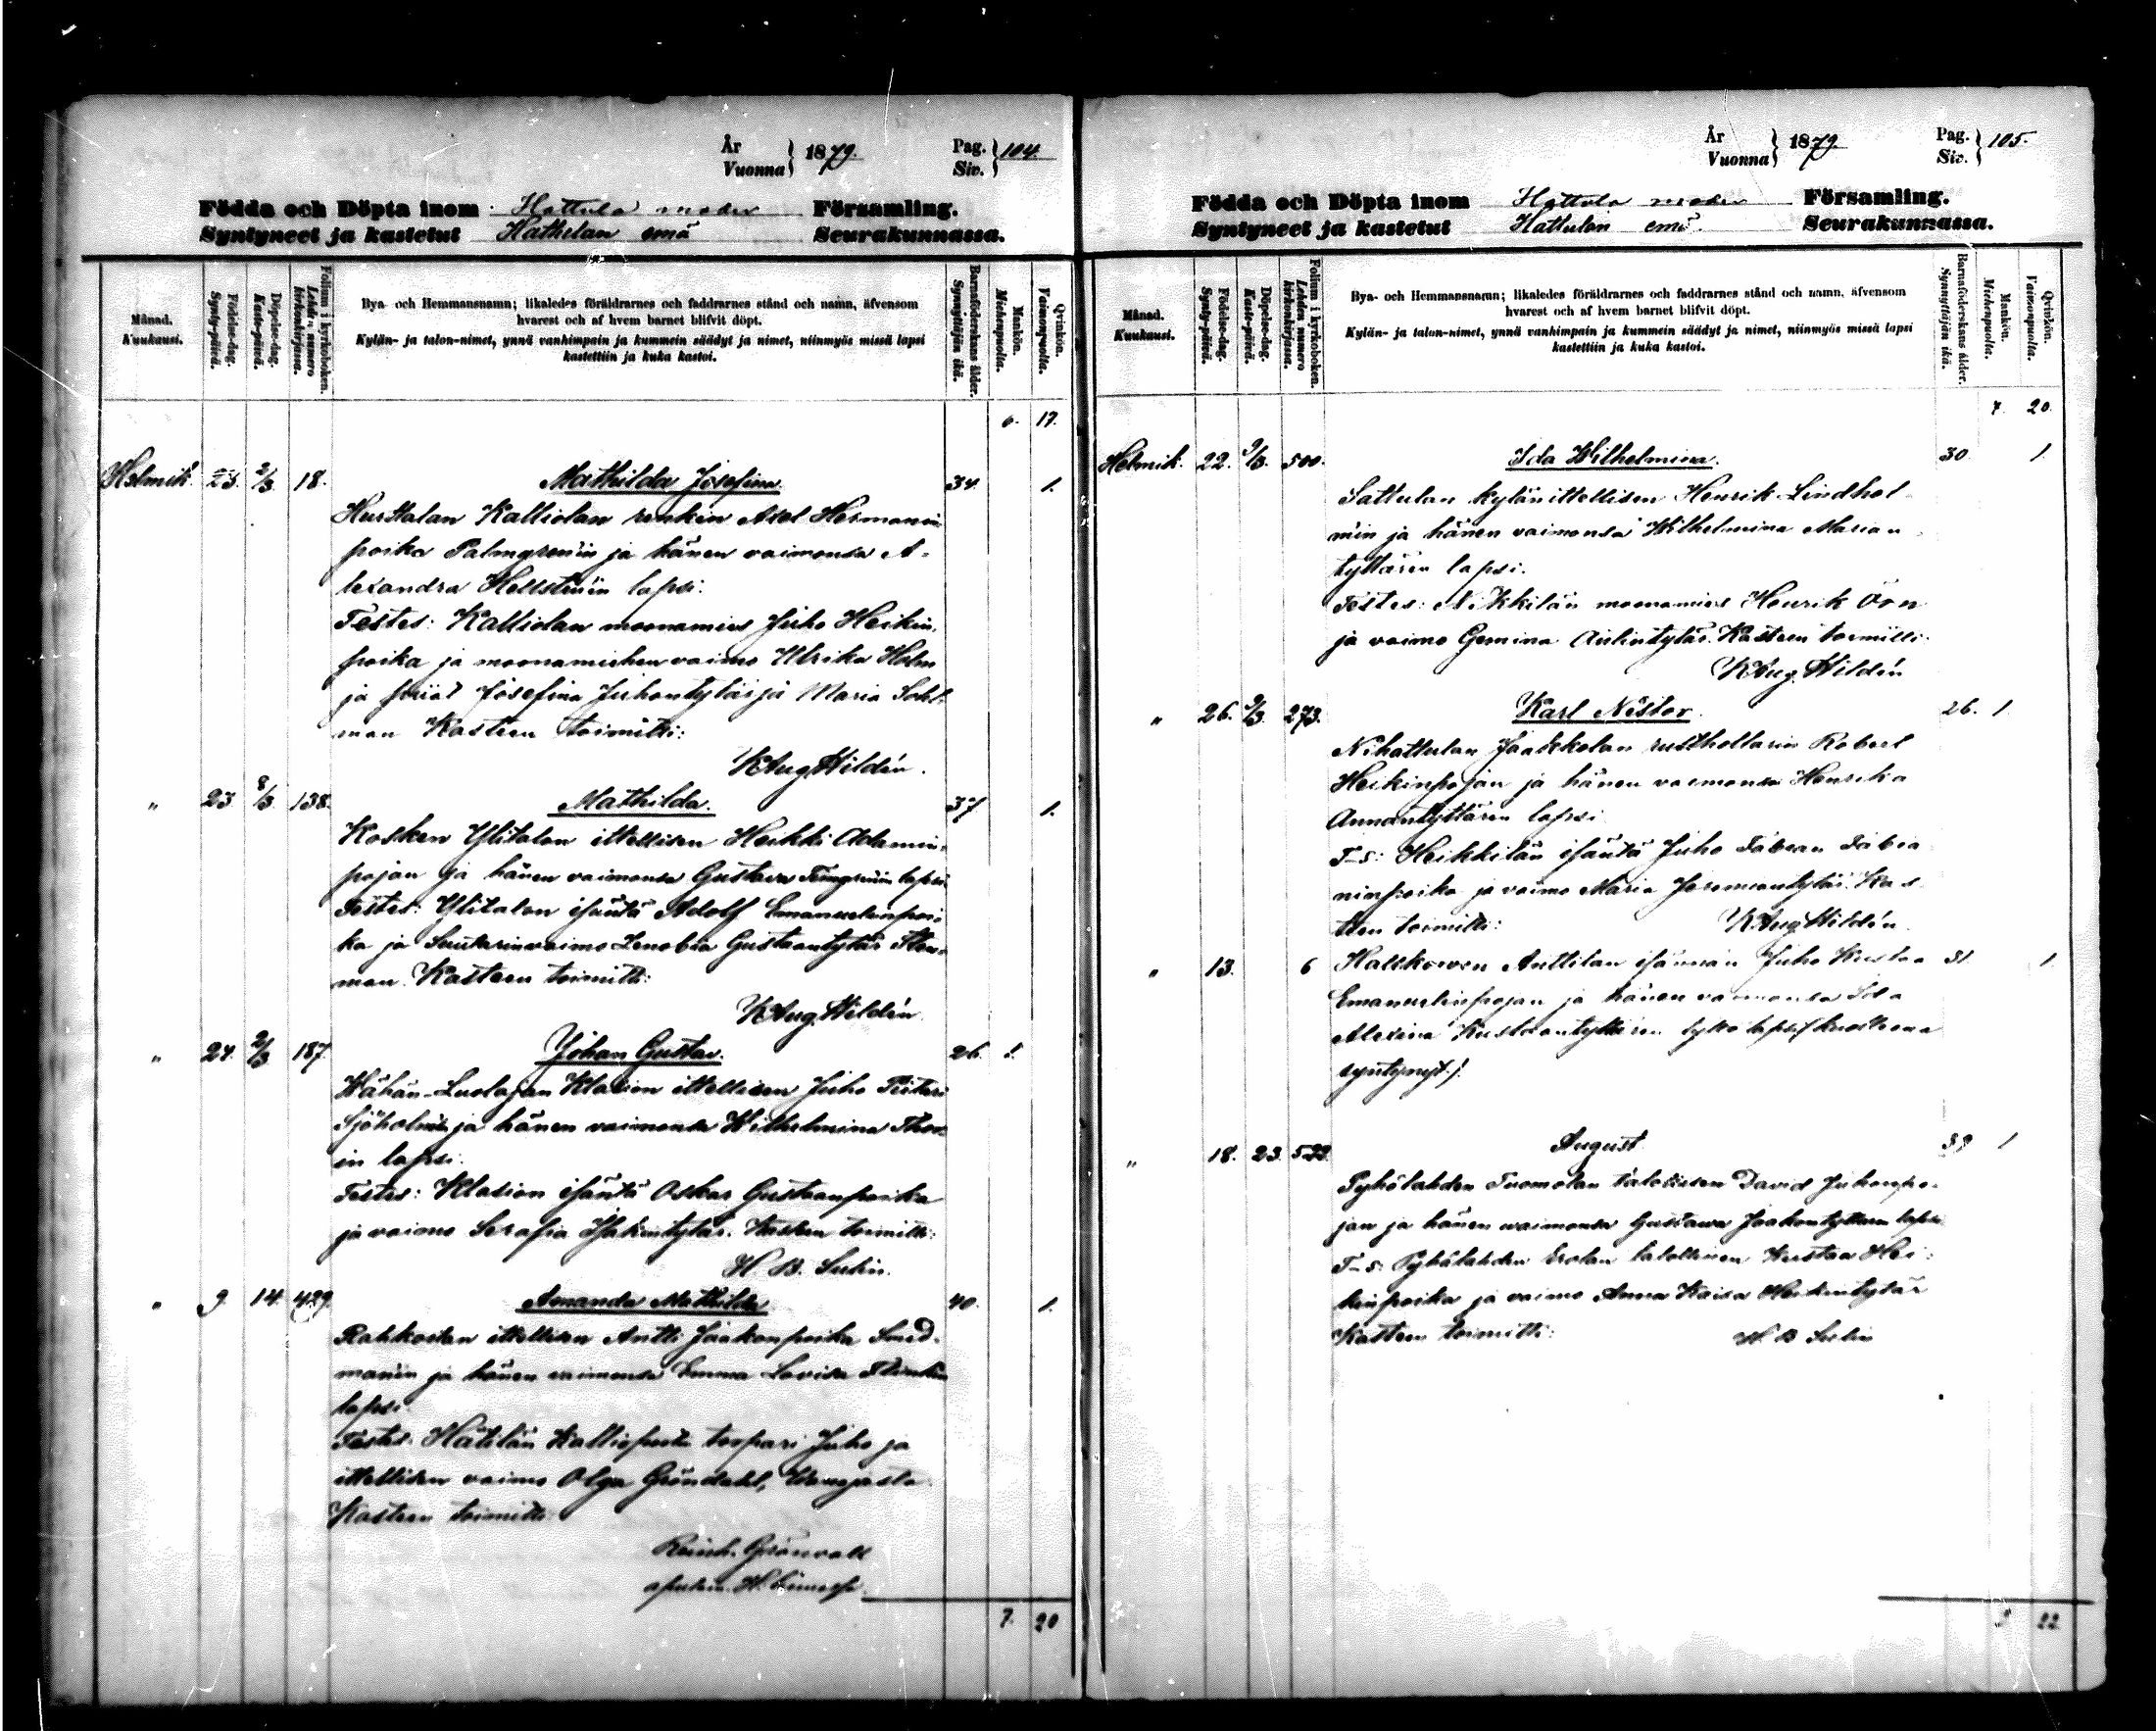 År
Vuonna } 1879.
Pag.
Siv. } 104.
Födda och Döpta inom Hattula moder Församling.
Syntyneet ja kastetut Hattulan emä Seurakunnassa.
Månad.
Kuukausi.
Födelse-dag.
Synty-päivä.
Döpelse-dag.
Kaste-päivä.
Folium i kyrkoboken.
Lehden numero kirkonkirjassa.
Bya- och Hemmansnamn; likaledes föräldrarnes och faddrarnes stånd och namn, äfvensom
hvarest och af hvem barnet blifvit döpt.
Kylän- ja talon-nimet, ynnä vanhimpain ja kummein säädyt ja nimet, niinmyös missä lapsi
kastettiin ja kuka kastoi.
Barnaföderskans ålder.
Synnyttäjän ikä.
Mankön.
Miehenpuolta.
Qvinkön.
Vaimonpuolta.
6. 17.
Helmik. 23. 2/3 18. Mathilda Josefina. 34. 1.
Hurttalan Kalliolan renkin Axel Hermanin
poika Palmgrenin ja hänen vaimonsa A-
lexandra Hellströmin lapsi.
Testes: Kalliolan moonamies Juho Heikin
poika ja moonamiehen vaimo Ulrika Holm
ja piiat Josefina Juhontytär ja Maria Sohl-
man Kasteen toimitti:
K Aug. Hildén.
" 23. 8/3 138. Mathilda. 37 1.
Kosken Ylitalon ittellisen Heikki Adamin-
pojan ja hänen vaimonsa Gustava lapsi.
Testes: Ylitalon isäntä Adolf Emanuelinpoi-
ka ja Suutarinvaimo Zenobia Gustaantytär
man. Kasteen toimitti:
K Aug. Hildén.
" 24. 2/3 187. Johan Gustav. 26. 1.
Wähän-Luolajan Klasion ittellisen Juho
Sjöholmin ja hänen vaimonsa Wilhelmina Thor-
in lapsi.
Testes: Klasion isäntä Oskar Gustaanpoika
ja vaimo Serafia Isakintytär. Kasteen toimitti:
H. B. Sulin.
" 9. 14. 429. Amanda Mathilda 40. 1.
Rahkoilan ittellisen Antti Jaakonpoika Smed-
manin ja hänen vaimonsa Emma Lovisa
lapsi.
Testes. Hätilän torpari Juho ja
ittellisen vaimo Olga Gröndahl,
Kasteen toimitti:
Reinh. Grönvall
7. 20
År
Vuonna } 1879
Pag.
Siv. } 105.
Födda och Döpta inom Hattula moder Församling.
Syntyneet ja kastetut Hattulan emä. Seurakunnassa.
Månad.
Kuukausi.
Födelse-dag.
Synty-päivä.
Döpelse-dag.
Kaste-päivä.
Folium i kyrkoboken.
Lehden numero kirkonkirjassa.
Bya- och Hemmansnamn; likaledes föräldrarnes och faddrarnes stånd och namn, äfvensom
hvarest och af hvem barnet blifvit döpt.
Kylän- ja talon-nimet, ynnä vanhimpain ja kummein säädyt ja nimet, niinmyös missä lapsi
kastettiin ja kuka kastoi.
Barnaföderskans ålder.
Synnyttäjän ikä.
Mankön.
Miehenpuolta.
Qvinkön.
Vaimonpuolta.
7. 20.
Helmik. 22. 9/3. 500. Ida Wilhelmina. 30 1.
Sattulan kylän ittellisen Henrik Lindhol-
min ja hänen vaimonsa Wilhelmina Marian
tyttären lapsi.
Testes: Nikkilän moonamies Henrik Öön
ja vaimo Gemina Antintytär. Kasteen toimitti:
K Aug. Hildén
" 26. 9/3. 273. Karl Nestor. 26. 1.
Nihattulan Jaakkolan rusthollarin Robert
Heikinpojan ja hänen vaimonsa Henrika
Annantyttären lapsi.
T-s: Heikkilän isäntä Juho Fabian Fabia-
ninpoika ja vaimo Maria Jeremiantytär. Kas-
teen toimitti: K Aug. Hildén.
" 13. 6 Halkorven Anttilan isännän Juho Kustaa 31 1.
Emanuelinpojan ja hänen vaimonsa Ida
Alexina Kustaantyttären tyttö lapsi (kuolleena
syntynyt.)
" 18. 23. August 39 1
Pyhälahden Tuomolan talollisen David Juhonpo-
jan ja hänen waimonsa Gustawa Jaakontyttären lapsi
T-s: Pyhälahden Erolan talollinen Kustaa Hei-
kinpoika ja vaimo Anna Kaisa Heikintytär
Kasteen toimitti: H. B Sulin
22